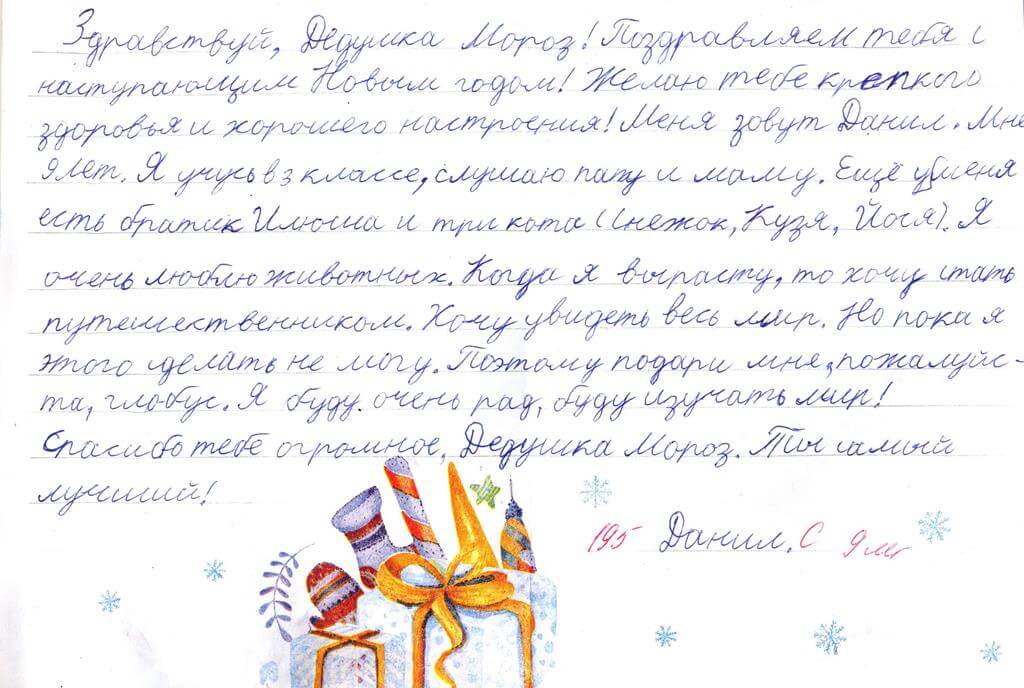 Здравствуй, Дедушка Мороз! Поздравляем тебя с
наступающим Новым годом! Желаю тебе крепкого
здоровья и хорошего настроения! Меня зовут Данил. Мне
9 лет. Я учусь в 3 классе, слушаю папу и маму. Ещё у меня
есть братик Илюша и три кота (Снежок, Кузя, Йося). Я
очень люблю животных. Когда я вырасту, то хочу стать
путешественником. Хочу увидеть весь мир. Но пока я
этого сделать не могу. Поэтому подари мне, пожалуйс-
та, глобус. Я буду очень рад, буду изучать мир!
Спасибо тебе огромное, Дедушка Мороз. Ты самый
лучший!
195 Данил. С 9 лет